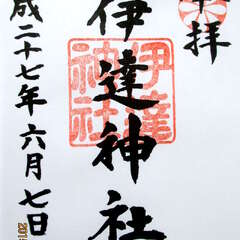 奉拝
伊達神社
伊達
神社
成二十七年六月七日
201